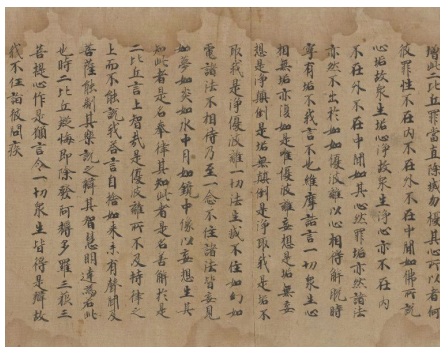 增此二比丘罪當直除滅勿擾其心所以者何
彼罪性不在內不在外不在中間如佛所說
心垢故眾生垢心淨故眾生淨心亦不在內
不在外不在中間如其心然罪垢亦然諸法
亦然不出於如如優波離以心相得解脫時
寧有垢不我言不也維摩詰言一切眾生心
相無垢亦復如是唯優波離妄想是垢無妄
想是淨顛倒是垢無顛倒是淨取我是垢不
取我是淨優波離一切法生滅不住如幻如
電諸法不相待乃至一念不住諸法皆妄見
如夢如炎如水中月如鏡中像以妄想生其
知此者是名奉律其知此者是名善解於是
二比丘言上智哉是優波離所不及持律之
上而不能說我答言自捨如來未有聲聞及
菩薩能制其樂說之辯其智慧明達為若此
也時二比丘疑悔即除發阿耨多羅三藐三
菩提心作是願言令一切眾生皆得是辯故
我不任詣彼問疾